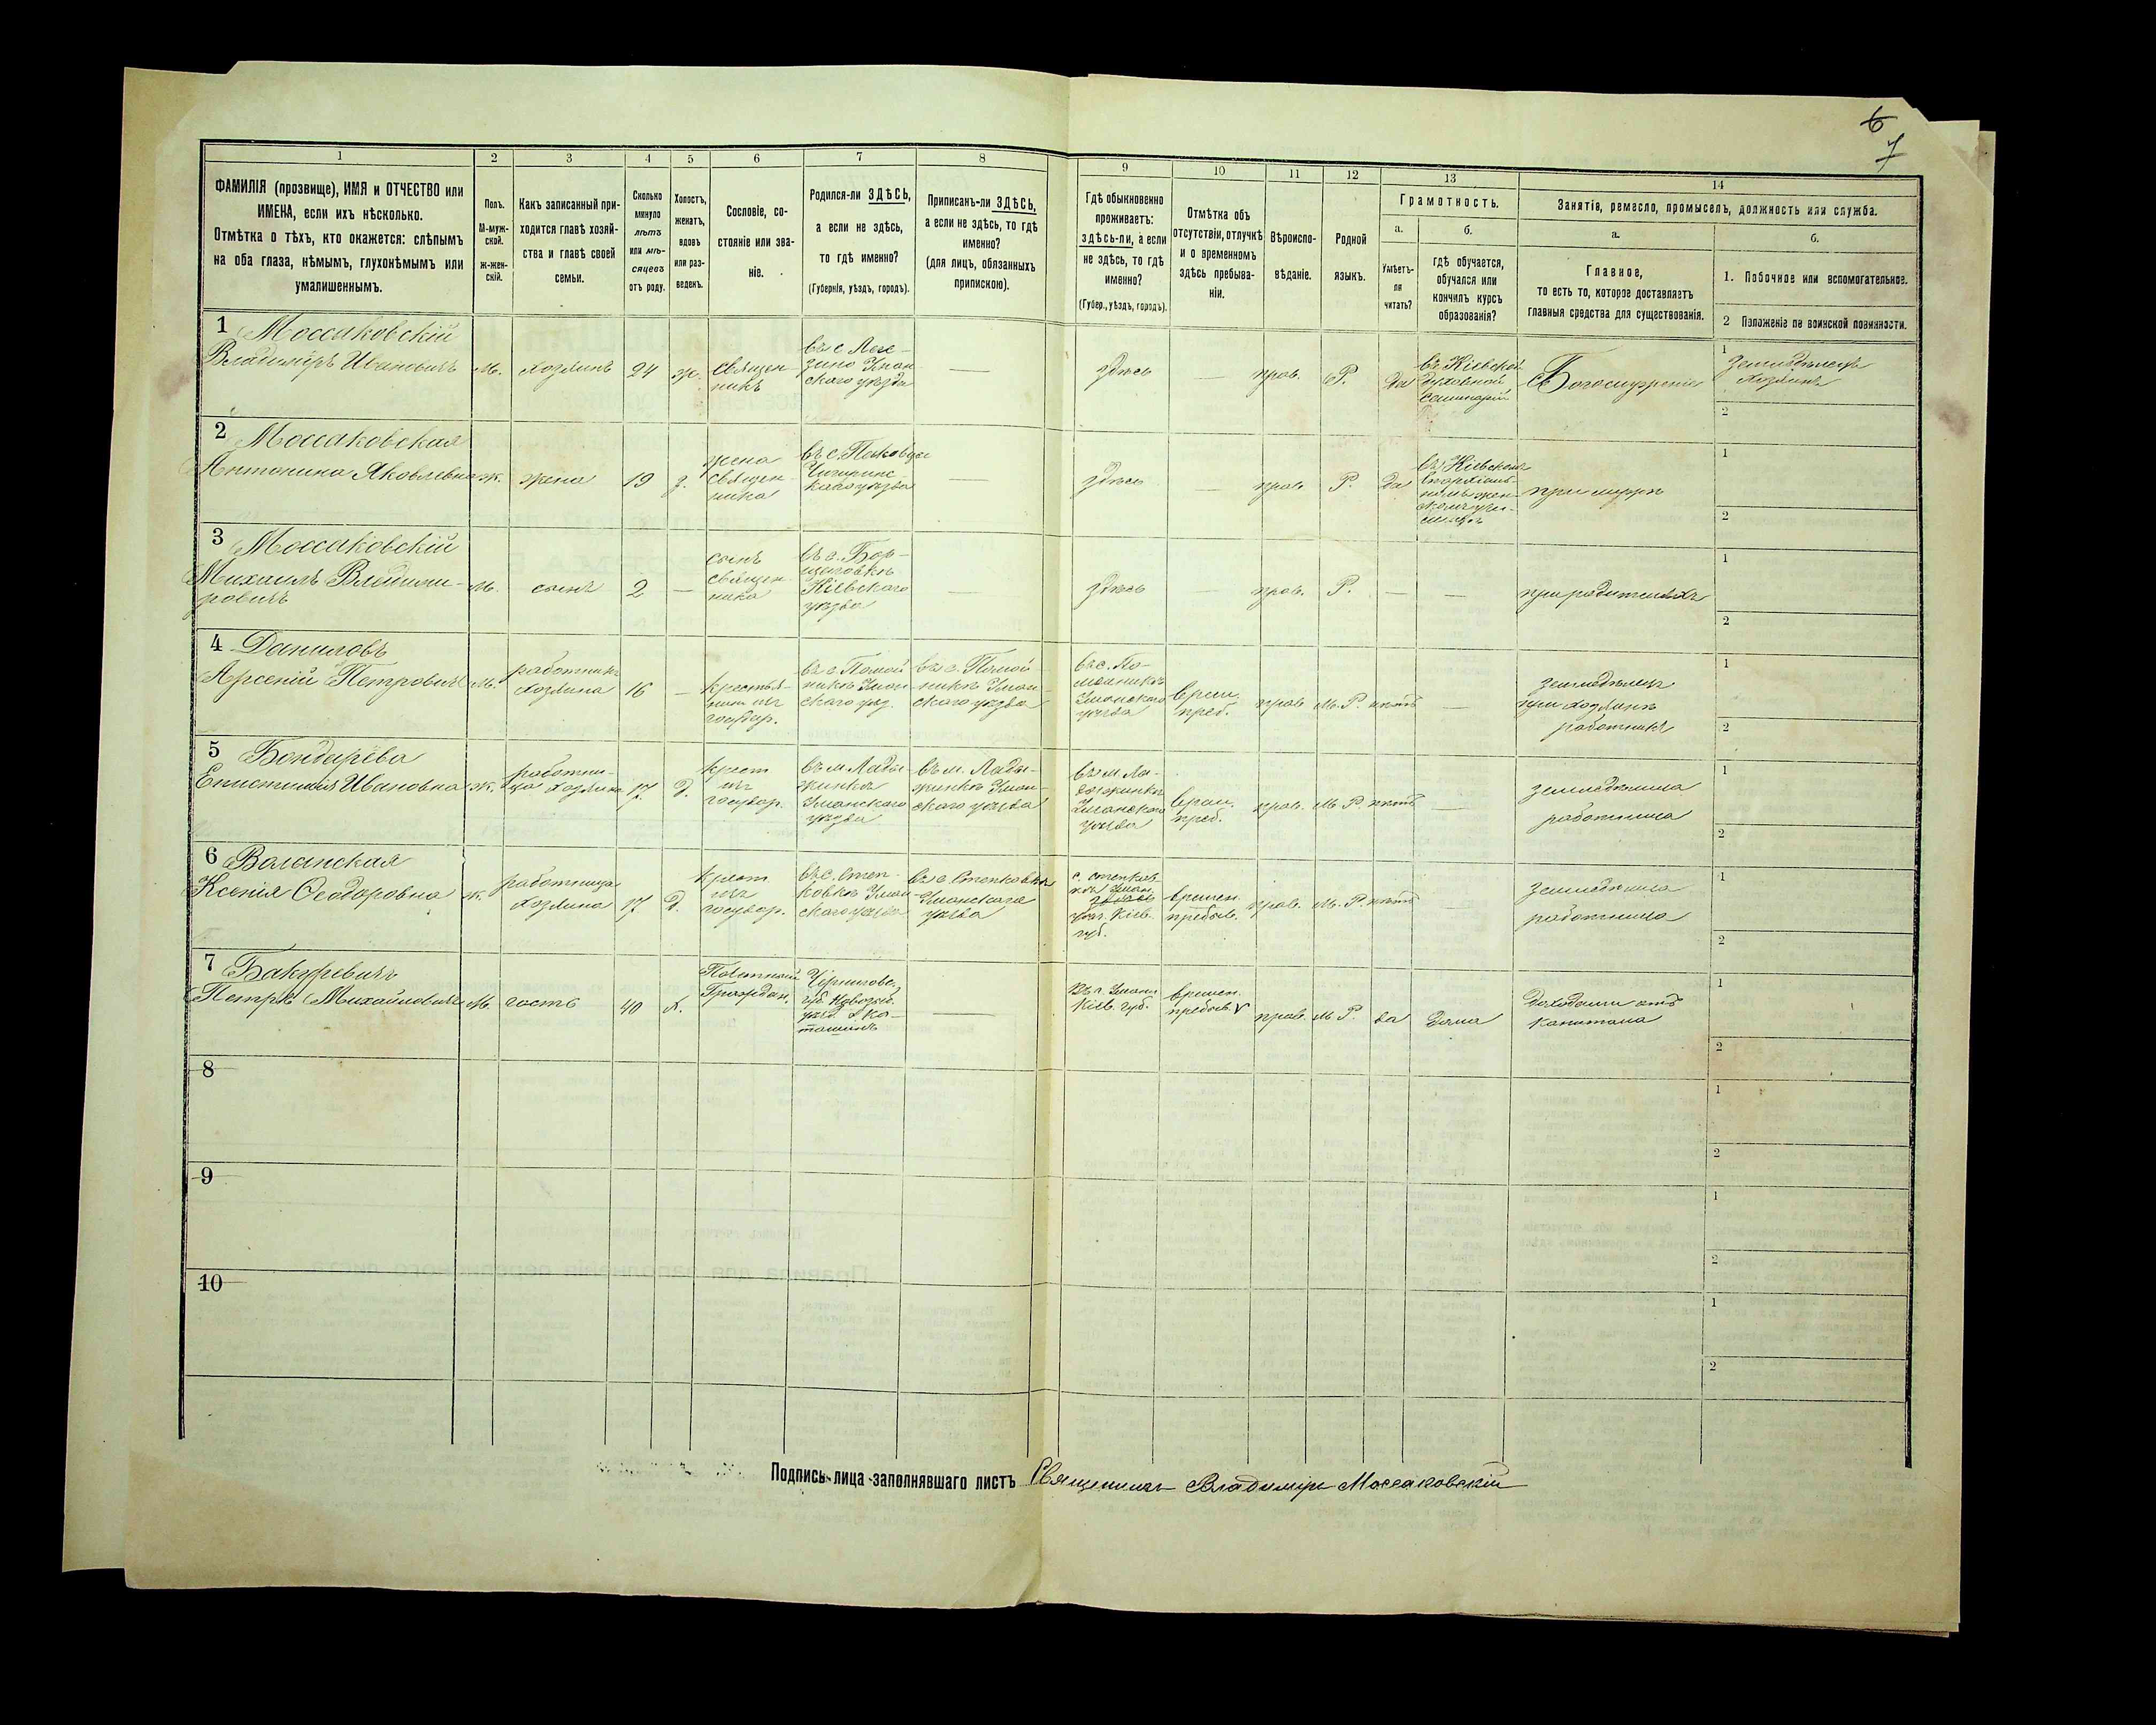 6
7
1 2 3 4 5 6 7 8 9 10 11 12 13 14
ФАМИЛІЯ (прозвище), ИМЯ и ОТЧЕСТВО или
ИМЕНА, если ихъ нѣсколько.
Отмѣтка о тѣхъ, кто окажется: слѣпымъ
на оба глаза, нѣмымъ, глухонѣмымъ или
умалишеннымъ.
Полъ.
М-муж-
ской.
ж-жен-
скій.
Какъ записанный при-
ходится главѣ хозяй-
ства и главѣ своей
семьи.
Сколько
минуло
лѣтъ
или мѣ-
сяцевъ
отъ роду.
Холостъ,
женатъ,
вдовъ
или раз-
веденъ.
Сословіе, со-
стояніе или зва-
ніе.
Родился-ли ЗДѢСЬ,
а если не здѣсь,
то гдѣ именно?
(Губернія, уѣздъ, городъ).
Приписанъ-ли ЗДѢСЬ,
а если не здѣсь, то гдѣ
именно?
(для лицъ, обязанныхъ
припискою).
Гдѣ обыкновенно
проживаетъ:
здѣсь-ли, а если
не здѣсь, то гдѣ
именно?
(Губер., уѣздъ, городъ).
Отмѣтка объ
отсутствіи, отлучкѣ
и о временномъ
здѣсь пребыва-
ніи.
Вѣроиспо-
вѣданіе.
Родной
языкъ.
Грамотность.
а.
Умѣетъ-
ли
читать?
б.
гдѣ обучается,
обучался или
кончилъ курсъ
образованія?
Занятіе, ремесло, промыселъ, должность или служба.
а.
Главное,
то есть то, которое доставляетъ
главныя средства для существованія.
б.
1. Побочное или вспомогательное.
2 Положеніе по воинской повинности.
1 Моссаковскій
Владиміръ Ивановичъ
м.
хозяинъ
24
ж.
Священ-
никъ
въ с Леге-
зино Уман
скаго уѣзда
—
здѣсь
—
прав.
Р.
да
въ Кіевской
духовной
семинаріи
Богослуженіе
1
Земледѣлецъ
хозяинъ
2
2 Моссаковская
Антонина Яковлевна
ж.
жена
19
з.
жена
священ-
ника
Чигринс-
каго уѣзда
—
здѣсь
—
прав.
Р.
да
въ Кіевскомъ
епархіаль-
номъ жен-
скомъ учи-
лищѣ
при мужѣ
1
2
3 Моссаковскій
Михаилъ Владими-
ровичъ
м.
сынъ
2
—
сынъ
священ-
ника
въ с. Бор-
щаговкѣ
Кіевскаго
уѣзда
—
здѣсь
—
прав.
Р.
—
—
при родителяхъ
1
2
4 Даниловъ
Арсеній Петровичъ
м.
работникъ
хозяина
16
—
крестья-
нинъ изъ
государ.
въ с. Помой
никѣ Уман-
скаго уѣз.
въ с. Помой-
никѣ Уман-
скаго уѣзда
въ с. По-
мойникѣ
Уманскаго
уѣзда
врем.
преб.
прав.
М. Р.
нѣтъ
—
земледѣлецъ
при хозяинѣ
работникъ
1
2
5 Бондарева
Епистимія Ивановна
ж.
работни-
ца хозяина
17
д.
крест
изъ
государ.
въ м. Лады-
жинкѣ
Уманскаго
уѣзда
въ м. Лады-
жинкѣ Уман-
скаго уѣзда
въ м. Ла-
дыжинкѣ
Уманскаго
уѣзда
врем.
преб.
прав.
М. Р.
нѣтъ
—
земледѣлица
работница
1
2
6 Воланская
Ксенія Ѳеодоровна
ж.
работница
хозяина
17
д.
крест
изъ
государ.
въ с. Степ-
ковкѣ Уман-
скаго уѣзда
въ с Степковкѣ
Уманскаго
уѣзда
с. Степков-
кѣ Уман.
уѣз. Кіев.
губ.
времен.
пребыв.
прав.
М. Р.
нѣтъ
—
Земледѣлица
работница
1
2
7 Бакуревичъ
Петръ Михайловичъ
м.
гость
40
х.
Почетный
Граждан.
Чернигов.
губ.
—
Въ г. Умани
Кіев. губ.
времен.
пребыв. V
прав.
М Р.
да
дома
Доходами отъ
капитала
1
2
8
1
2
9
1
2
10
1
2
Подпись лица заполнявшаго листъ Священникъ Владиміръ Моссаковскій